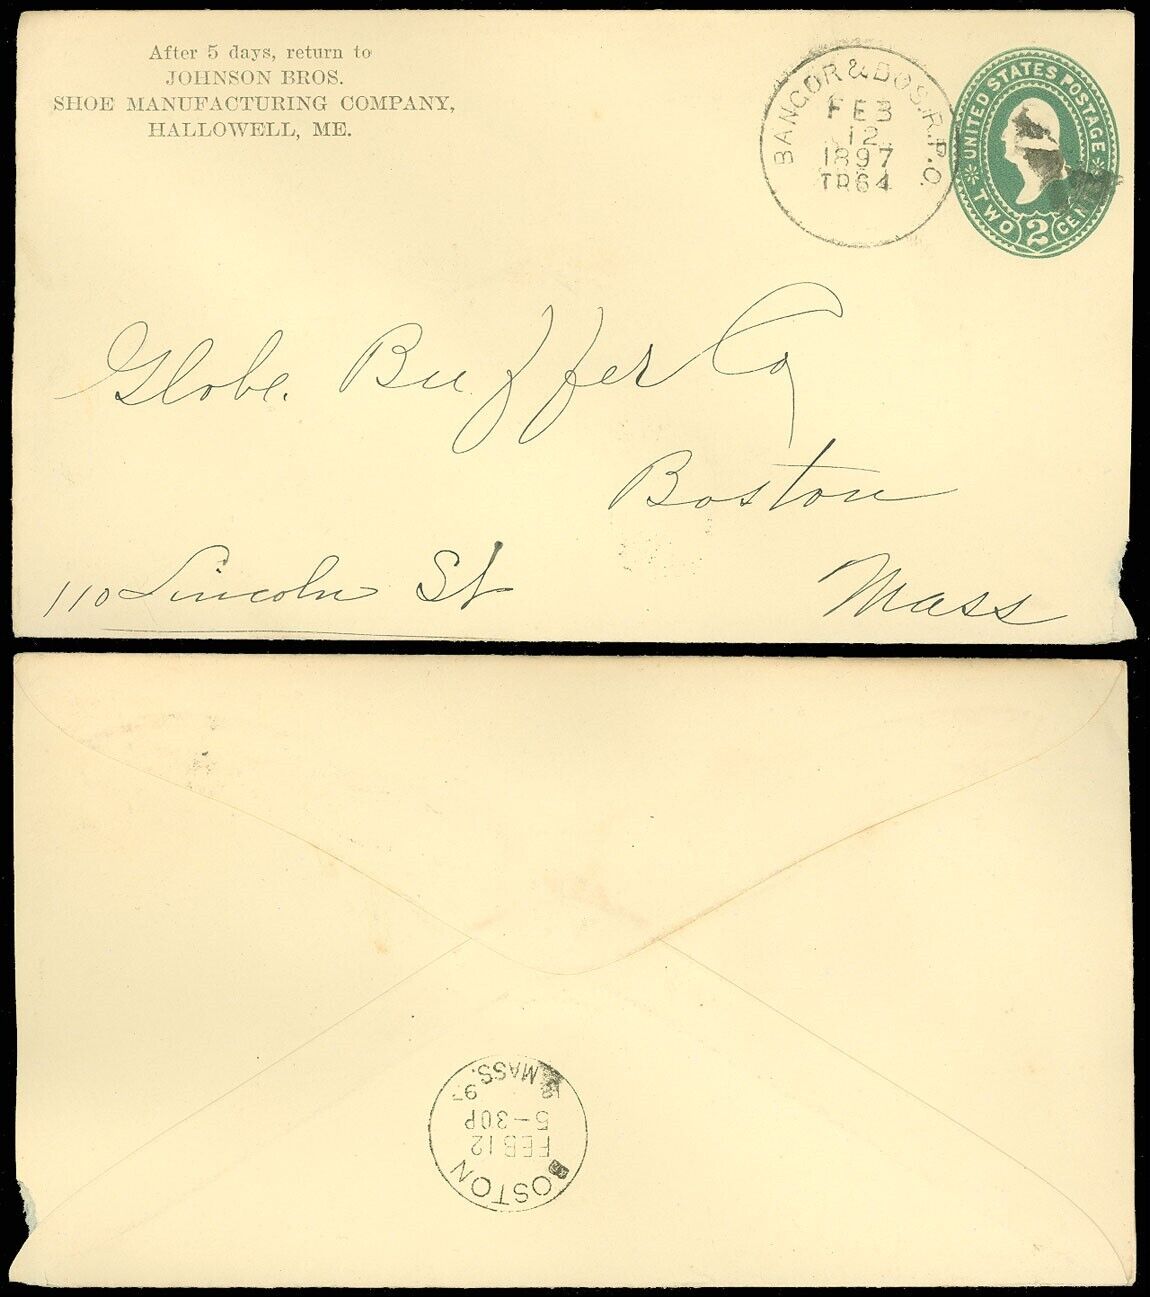 After 5 days, return to
JOHNSON BROS.
SHOE MANUFACTURING COMPANY,
HALLOWELL, ME.
BANGOR & BOS. R.P.O.
FEB
12
1897
TR 64
UNITED STATES POSTAGE
TWO 2 CENTS
Globe. Buffer Co
Boston
110 Lincoln St
Mass
BOSTON
FEB 12
5-30P
MASS.